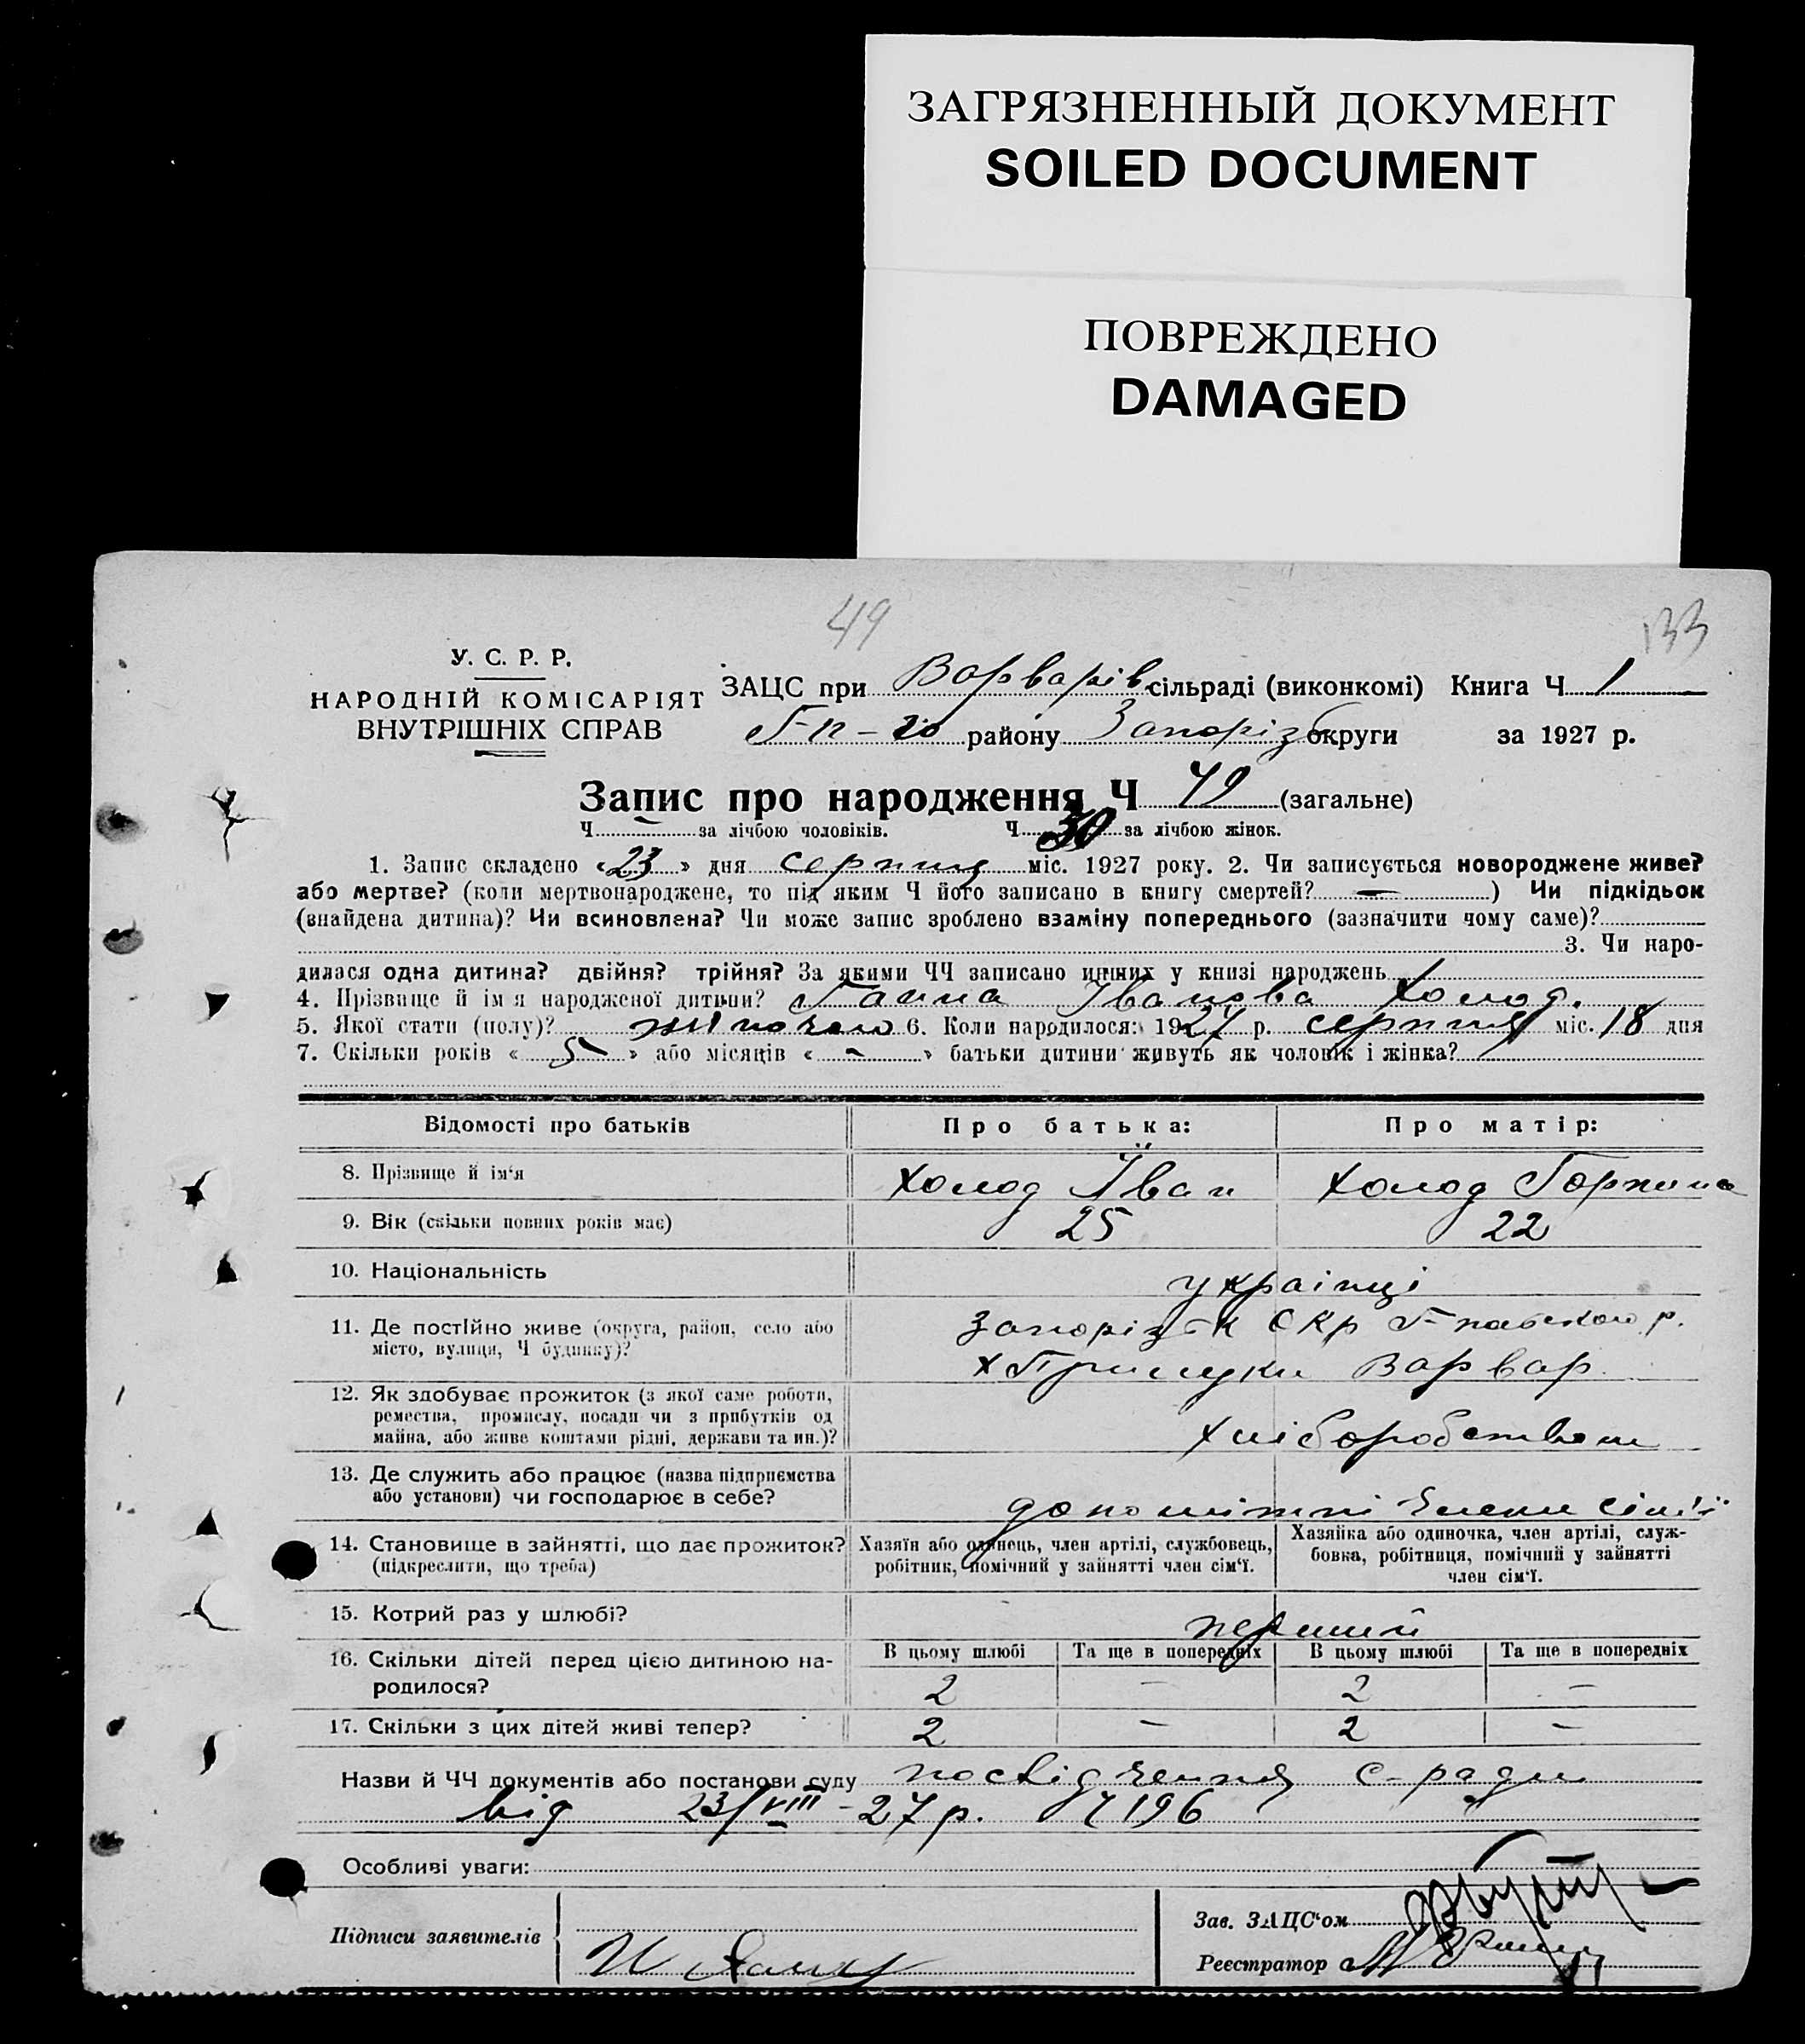 ЗАГРЯЗНЕННЫЙ ДОКУМЕНТ
SOILED DOCUMENT
ПОВРЕЖДЕНО
DAMAGED
49
133
У. С. Р. Р.
НАРОДНІЙ КОМІСАРІЯТ
ВНУТРІШНІХ СПРАВ
ЗАЦС при Варварів сільраді (виконкомі) Книга Ч 1
району Запоріз округи за 1927 р.
Запис про народження Ч 49 (загальне)
Ч — за лічбою чоловіків. Ч 30 за лічбою жінок.
1. Запис складено «23» дня серпня міс. 1927 року. 2. Чи записується новороджене живе?
або мертве? (коли мертвонароджене, то під яким Ч його записано в книгу смертей? — ) Чи підкідьок
(знайдена дитина)? Чи всиновлена? Чи може запис зроблено взаміну попереднього (зазначити чому саме)?
3. Чи наро-
дилася одна дитина? двійня? трійня? За якими ЧЧ записано инчих у книзі народжень
4. Прізвище й ім я народженої дитини? Ганна Іванова Холод.
5. Якої стати (полу)? жіночої 6. Коли народилося: 1927 р. серпня міс. 18 дня
7. Скільки років « 5 » або місяців « - » батьки дитини живуть як чоловік і жінка?
Відомості про батьків Про батька: Про матір:
8. Прізвище й ім‘я Холод Іван Холод Горпина
9. Вік (скільки повних років має) 25 22
10. Національність українці
11. Де постійно живе (округа, район, село або
місто, вулиця, Ч будинку)?
Запорізьк Окр Г-павської р.
х Прилуки Варвар.
12. Як здобуває прожиток (з якої саме роботи,
ремества, промислу, посади чи з прибутків од
майна, або живе коштами рідні, держави та ин.)?
хліборобством
13. Де служить або працює (назва підприємства
або установи) чи господарює в себе?
допоміжні члени сім'ї
14. Становище в зайнятті, що дає прожиток?
(підкреслити, що треба)
Хазяїн або одинець, член артілі, службовець,
робітник, помічний у зайнятті член сім‘ї.
Хазяйка або одиночка, член артілі, служ-
бовка, робітниця, помічний у зайнятті
член сім‘ї.
15. Котрий раз у шлюбі? перший
16. Скільки дітей перед цією дитиною на-
родилося?
В цьому шлюбі Та ще в попередніх В цьому шлюбі Та ще в попередніх
2 — 2 —
17. Скільки з цих дітей живі тепер? 2 — 2 —
Назви й ЧЧ документів або постанови суду посвідчення с-ради
від 23/VIII-27 р. Ч 196
Особливі уваги:
Підписи заявителів
Зав. ЗАЦС‘ом
Реєстратор